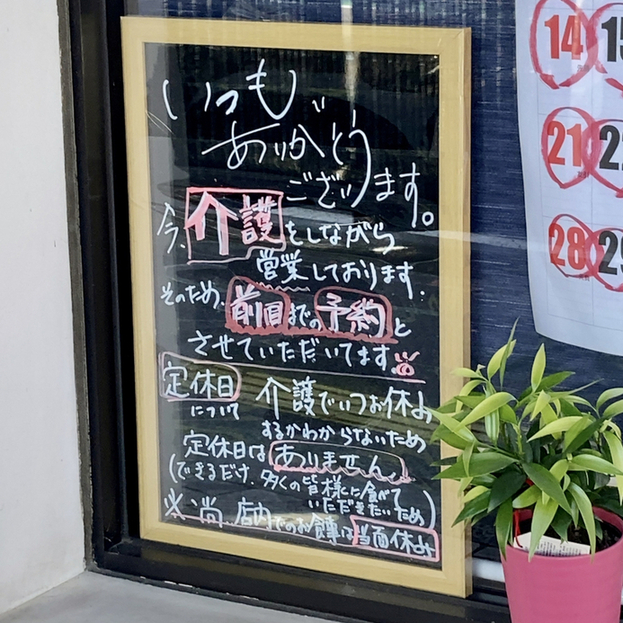 いつも
ありがとう
ございます。
今、介護をしながら
営業しております.
そのため、前日までの予約と
させていただいてます
定休日
について
介護でいつお休み
するかわからないため
定休日はありません
(できるだけ、多くの皆様に食べて
いただきたいため)
※尚、店内でのお食事は当面休み
14 15
21 22
28 29